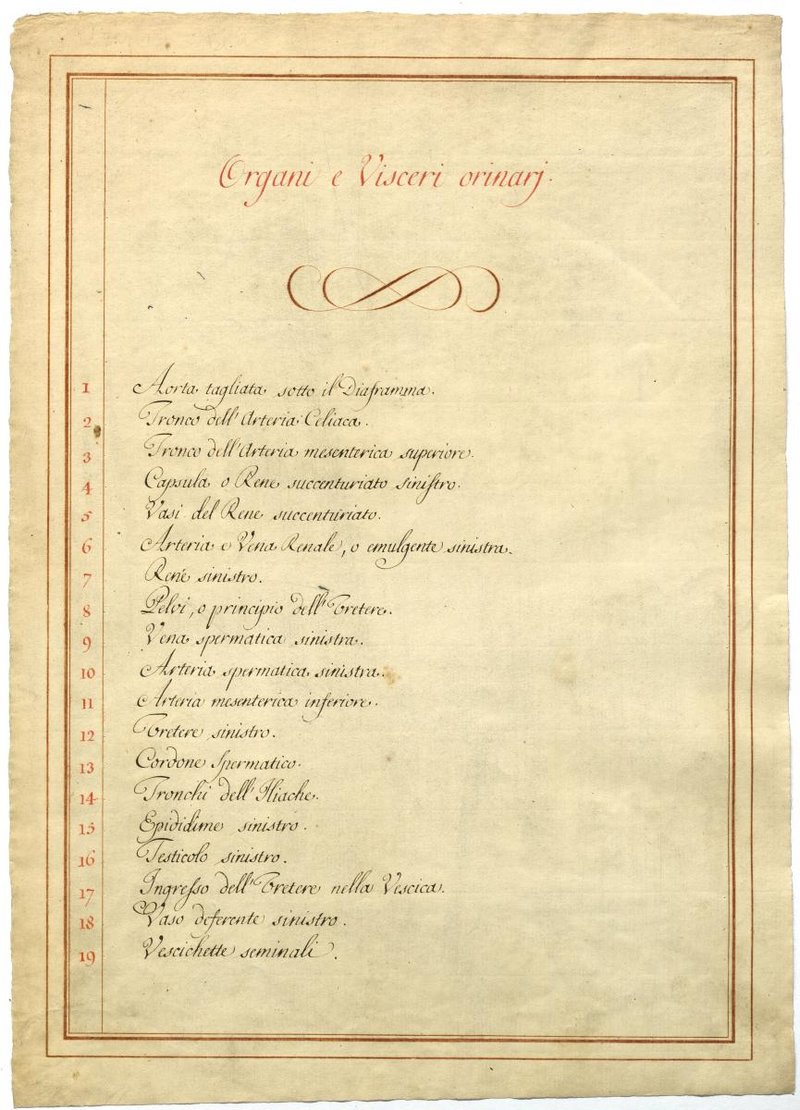 Organi e Visceri orinarj.
1 Aorta tagliata sotto il Diaframma.
2 Tronco dell'Arteria Celiaca.
3 Tronco dell'Arteria mesenterica superiore.
4 Capsula o Rene succenturiato sinistro.
5 Vasi del Rene succenturiato.
6 Arteria e Vena Renale, o emulgente sinistra.
7 Rene sinistro.
8 Pelvi, o principio dell'Vretere.
9 Vena spermatica sinistra.
10 Arteria spermatica sinistra.
11 Arteria mesenterica inferiore.
12 Vretere sinistro.
13 Cordone Spermatico.
14 Tronchi dell'Iliache.
15 Epididime sinistro.
16 Testicolo sinistro.
17 Ingresso dell'Vretere nella Vescica.
18 Vaso deferente sinistro.
19 Vescichette seminali.